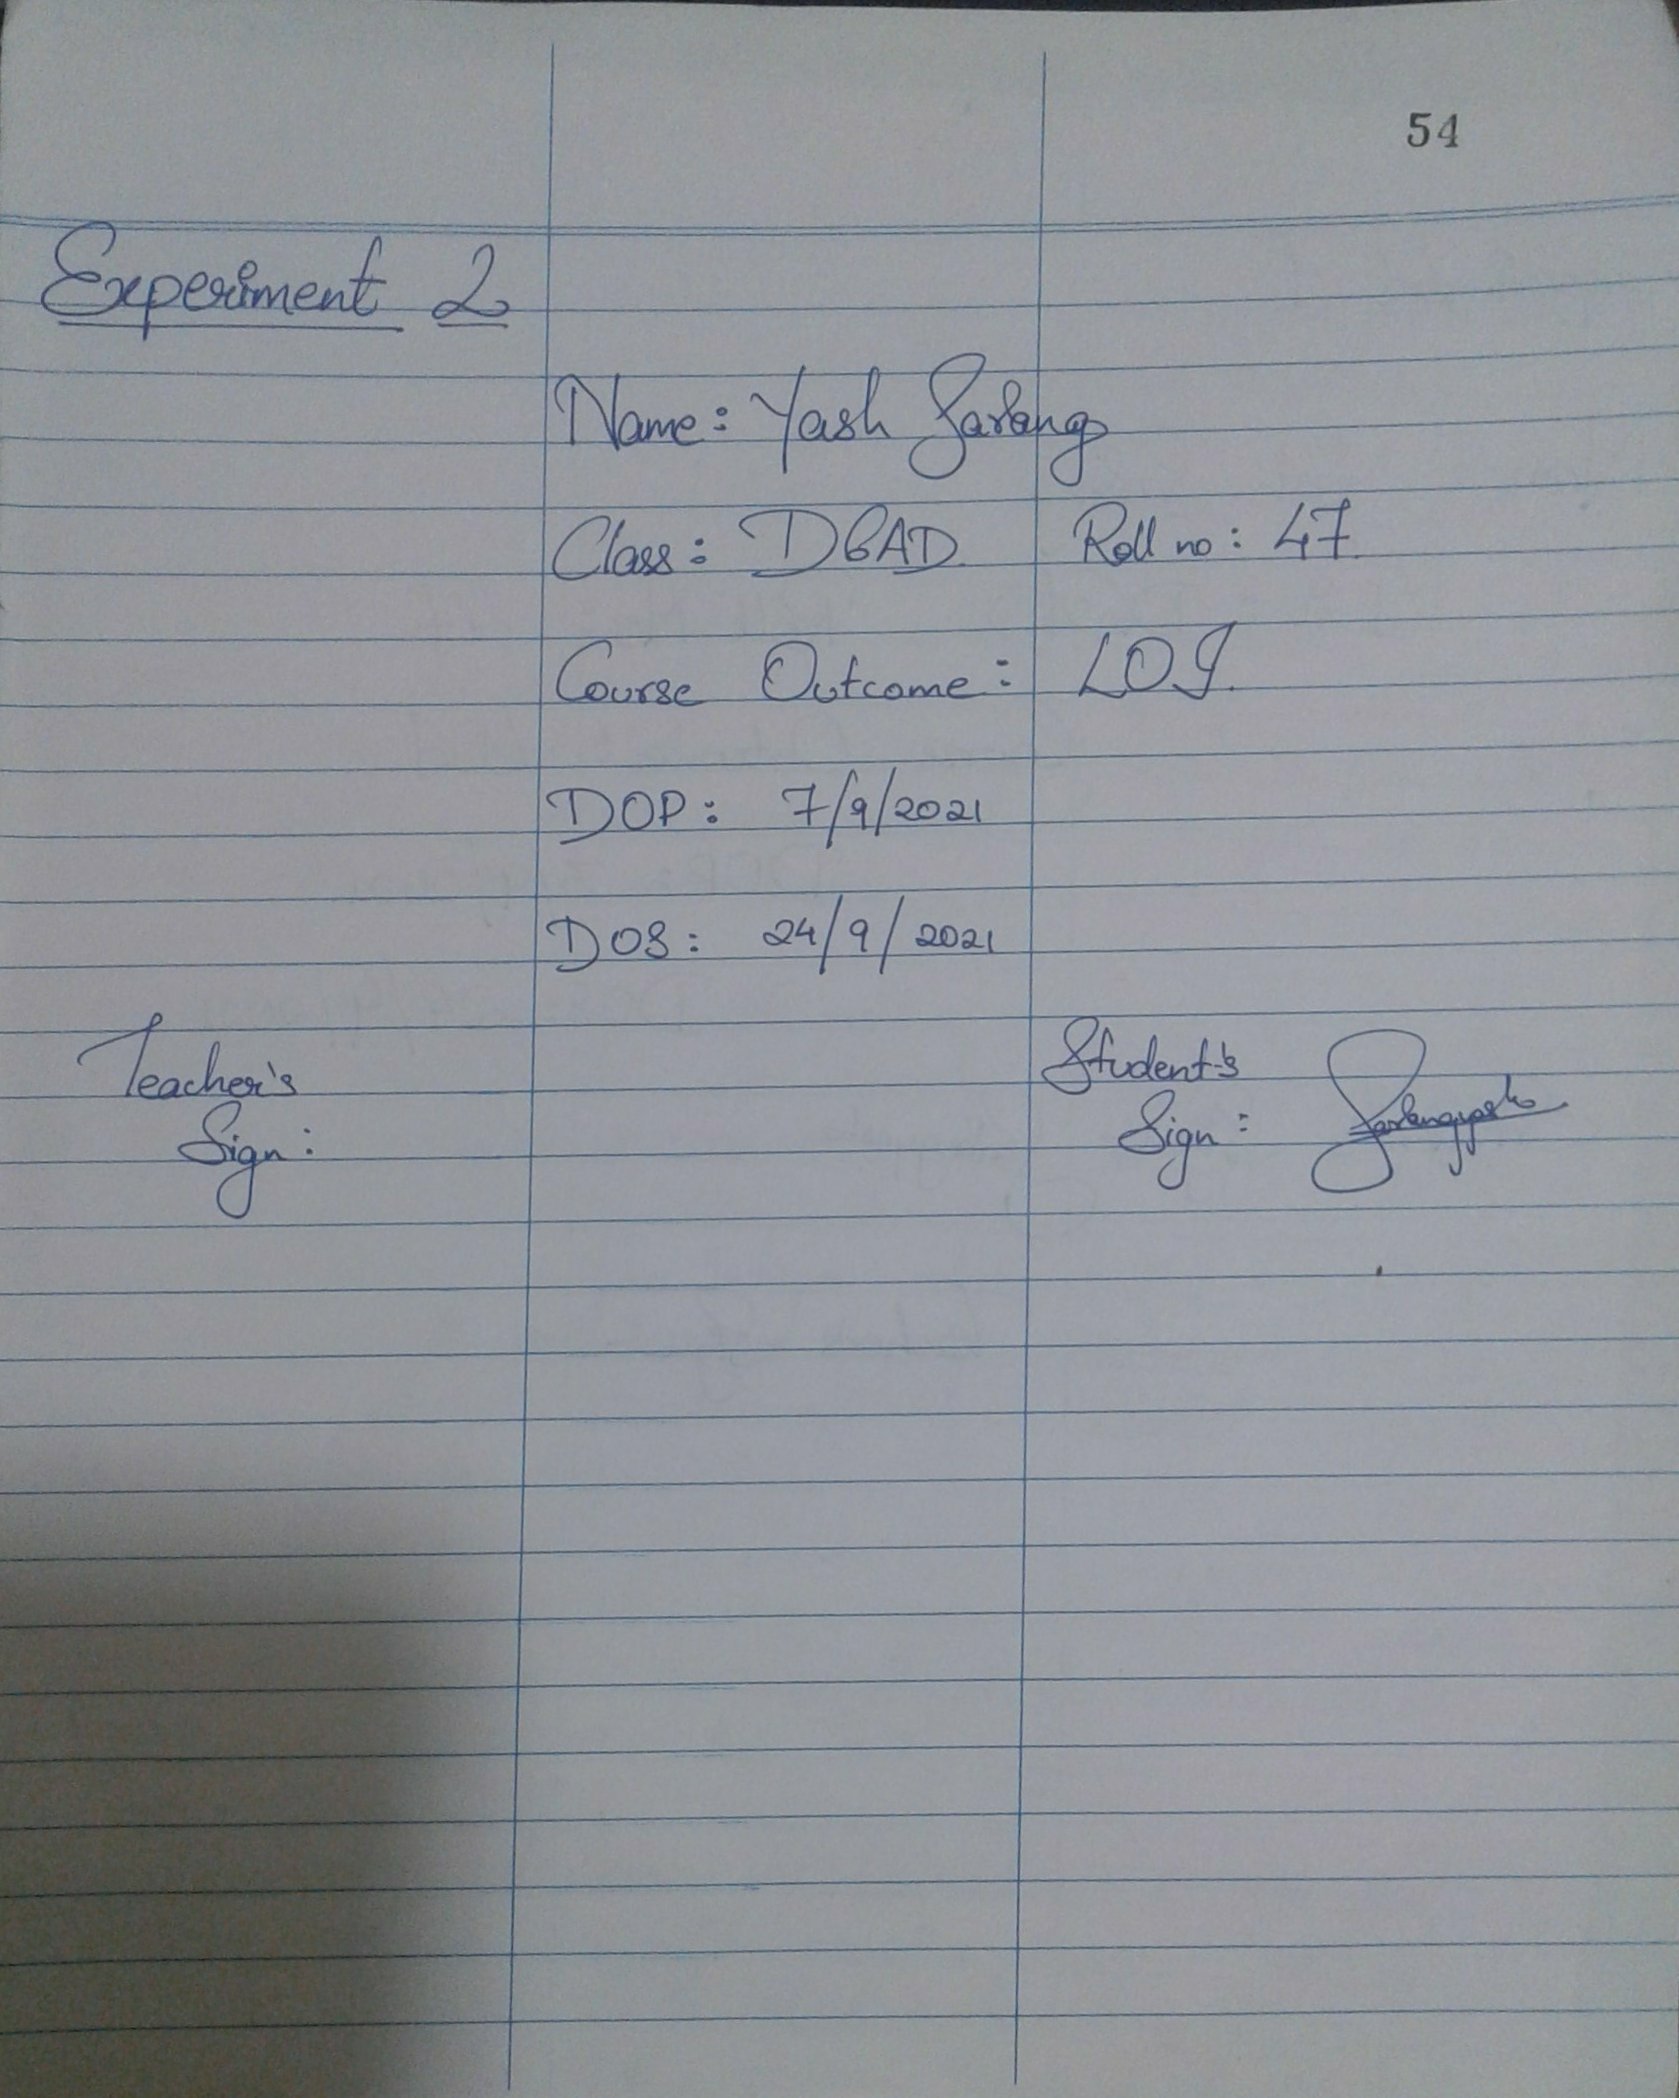 54
Experiment 2
Name: Yash Sarang
Class: D6AD Roll no: 47
Course Outcome: LO1.
DOP: 7/9/2021
DOS: 24/9/2021
Teacher's Student's
Sign: Sign: Sarangyash